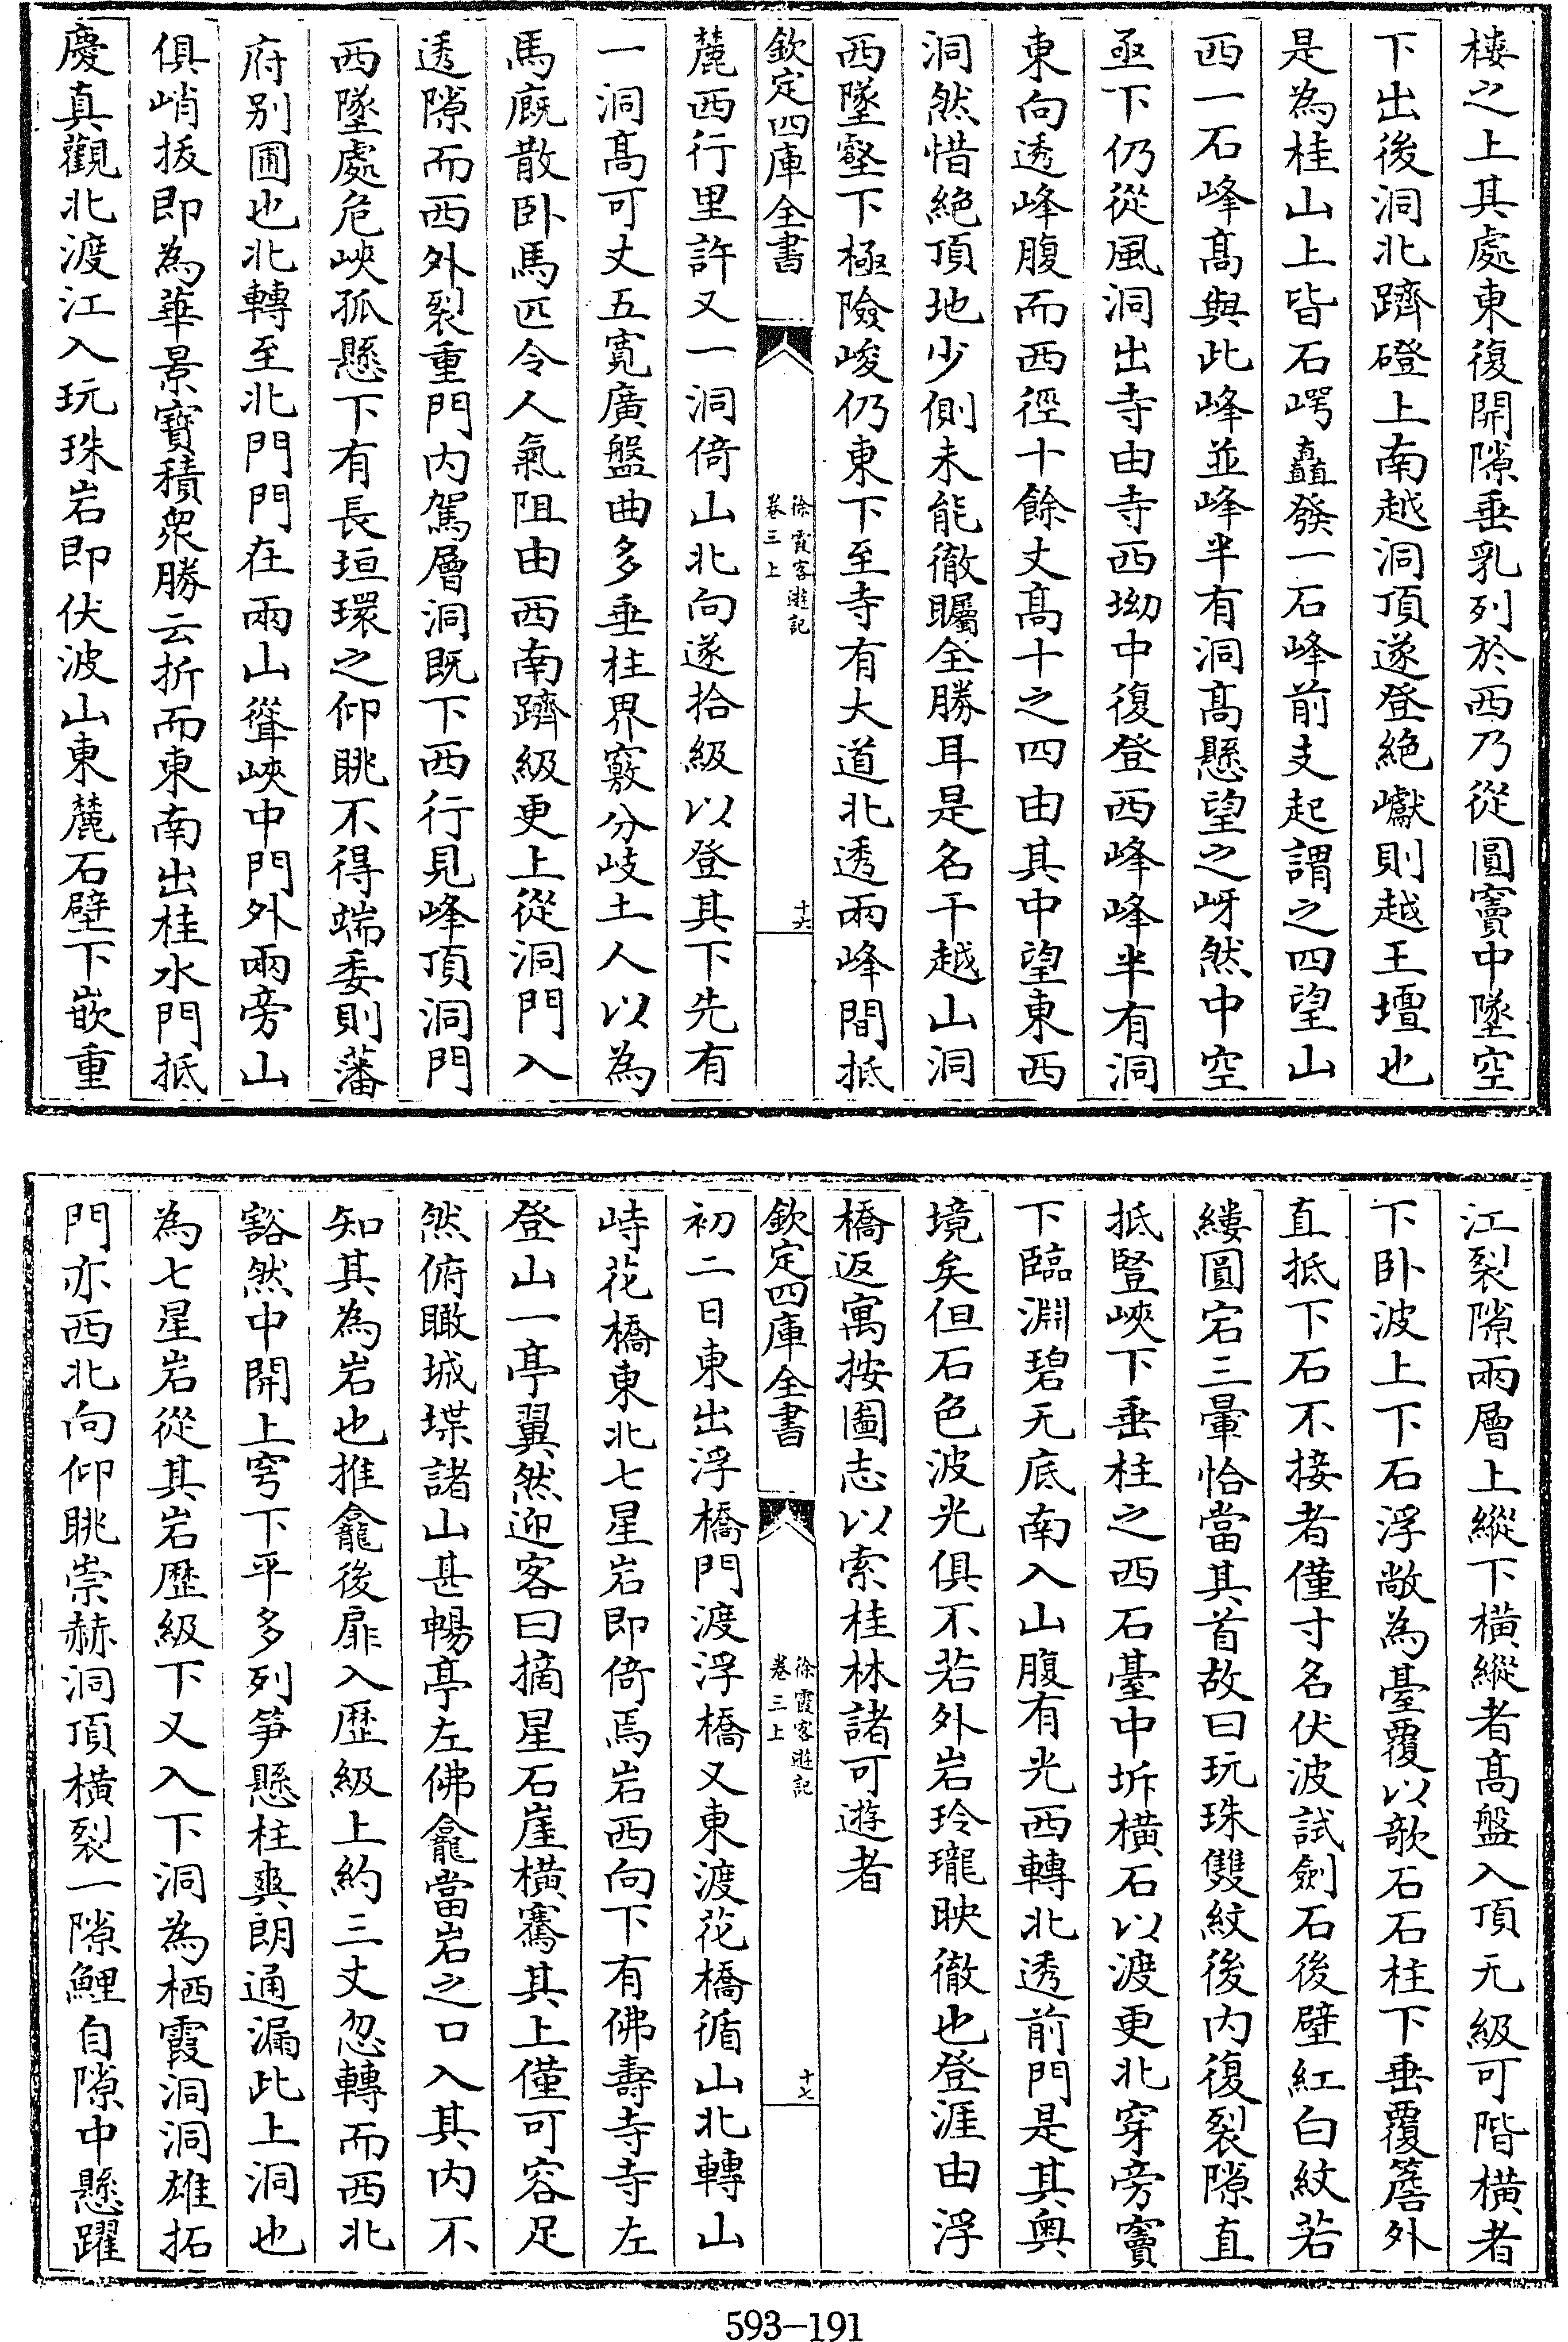 樓之上其處東復開隙垂乳列於西乃從圓竇中墜空
下出後洞北躋磴上南越洞頂遂登絶巘則越王壇也
是為桂山上皆石崿矗發一石峰前支起謂之四望山
西一石峰髙與此峰並峰半有洞髙懸望之岈然中空
亟下仍從風洞出寺由寺西坳中復登西峰峰半有洞
東向透峰腹而西徑十餘丈髙十之四由其中望東西
洞然惜絶頂地少側未能徹矚全勝耳是名干越山洞
西墜壑下極險峻仍東下至寺有大道北透兩峰間抵
欽定四庫全書
徐霞客遊記
卷三上
十六
麓西行里許又一洞倚山北向遂拾級以登其下先有
一洞髙可丈五寬廣盤曲多垂柱界竅分岐土人以為
馬廐散卧馬匹令人氣阻由西南躋級更上從洞門入
透隙而西外裂重門内駕層洞既下西行見峰頂洞門
西墜處危峽孤懸下有長垣環之仰眺不得端委則藩
府别圃也北轉至北門門在兩山聳峽中門外兩旁山
俱峭拔即為華景寳積衆勝云折而東南出桂水門抵
慶真觀北渡江入玩珠岩即伏波山東麓石壁下嵌重
江裂隙兩層上縱下橫縱者髙盤入頂无級可階橫者
下卧波上下石浮敞為臺覆以歌石石柱下垂覆簷外
直抵下石不接者僅寸名伏波試劍石後壁紅白紋若
縷圓宕三暈恰當其首故曰玩珠雙紋後内復裂隙直
抵豎峽下垂柱之西石臺中坼橫石以渡更北穿旁竇
下臨淵碧无底南入山腹有光西轉北透前門是其奥
境矣但石色波光俱不若外岩玲瓏映徹也登涯由浮
橋返寓按圖志以索桂林諸可遊者
欽定四庫全書
徐霞客遊記
卷三上
十七
初二日東出浮橋門渡浮橋又東渡花橋循山北轉山
峙花橋東北七星岩即倚焉岩西向下有佛壽寺寺左
登山一亭翼然迎客曰摘星石崖橫騫其上僅可容足
然俯瞰城堞諸山甚暢亭左佛龕當岩之口入其内不
知其為岩也推龕後扉入歴級上約三丈忽轉而西北
豁然中開上穹下平多列笋懸柱爽朗通漏此上洞也
為七星岩從其岩歴級下又入下洞為栖霞洞洞雄拓
門亦西北向仰眺崇赫洞頂橫裂一隙鯉自隙中懸躍
593-191